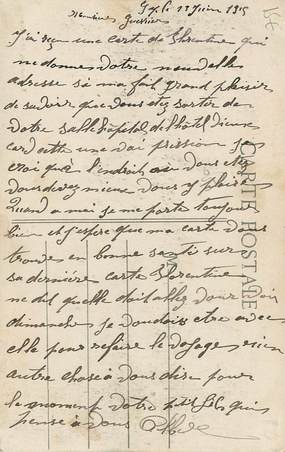 13 Juin 1915
15c
Monsieur Guerrier
J'ai reçu une carte de Florentine qui
me donne votre nouvelle
adresse sa ma fait grand plaisir
de savoir que vous etes sortie de
votre salle hôpital de l'hôtel Dieu
car cetté une vrai prission je
croi qua l'endroit ou vous etes
vous devez mieux vous y plaire
Quand a moi je me porte toujour
bien et j'espere que ma carte vous
trouve en bonne santé sur
sa derniére carte Florentine
me dit quelle doit allez vous voir
dimanche je voudrais etre avec
elle pour refaire le voyage rien
autre chose a vous dire pour
le moment votre qui
pense a vous
CARTE POSTALE